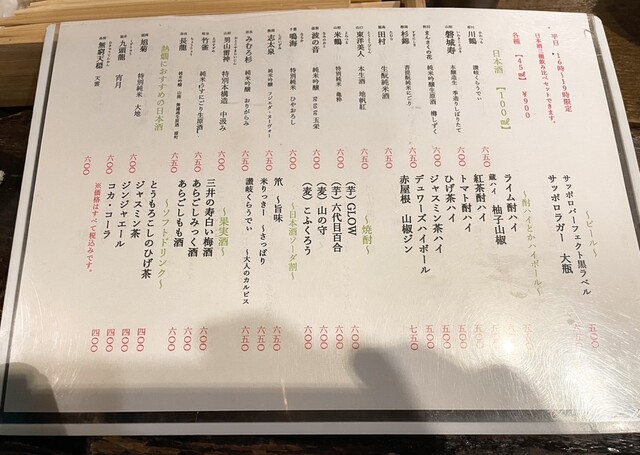 平日 16時〜19時限定
日本酒三種飲み比べセットできます。
各種 【45㎖】 ¥900
日本酒 【100㎖】
川鶴 讃岐くらうでぃ 六〇〇
磐城壽 本醸造生 季造りしぼりたて 六〇〇
まんさくの花 純米吟醸生原酒 槽しずく
杉錦 菩提酛純米にごり
田村 生酛純米酒 六五〇
東洋美人 本生酒 地帆紅 六五〇
米鶴 特別純米 六〇〇
波の音 純米吟醸 玉栄 六五〇
鳴海 特別純米 ひやおろし 六〇〇
志太泉 純米吟醸
みむろ杉 純米吟醸 おりがらみ 六五〇
男山雷神 特別本醸造 中汲み 六〇〇
竹雀 純米うすにごり生原酒 六五〇
長龍 六五〇
熱燗におすすめの日本酒
旭菊 特別純米 大地 六〇〇
九頭龍 宵月 六〇〇
無窮天穏 天雲 六〇〇
〜ビール〜
サッポロパーフェクト黒ラベル
サッポロラガー 大瓶
〜酎ハイとかハイボール〜
ライム酎ハイ
蔵ハイ 柚子山椒
紅茶酎ハイ 五〇〇
トマト酎ハイ 五〇〇
ひげ茶ハイ 五〇〇
ジャスミン茶ハイ 五〇〇
デュワーズハイボール 五〇〇
赤屋根 山椒ジン 七五〇
〜焼酎〜
(芋) GLOW 六〇〇
(芋) 六代目百合 六〇〇
(麦) 山の守 六〇〇
(麦) こふくろう 六〇〇
〜日本酒ソーダ割〜
笊 〜旨味
米りっきー 〜さっぱり 六五〇
讃岐くらうでぃ 〜大人のカルピス 六五〇
〜果実酒〜
三井の寿白い梅酒 六〇〇
あらごしみっく酒 六〇〇
あらごしもも酒 六〇〇
〜ソフトドリンク〜
とうもろこしのひげ茶 四〇〇
ジャスミン茶 四〇〇
ジンジャエール 四〇〇
コカ・コーラ 四〇〇
※価格はすべて税込みです。